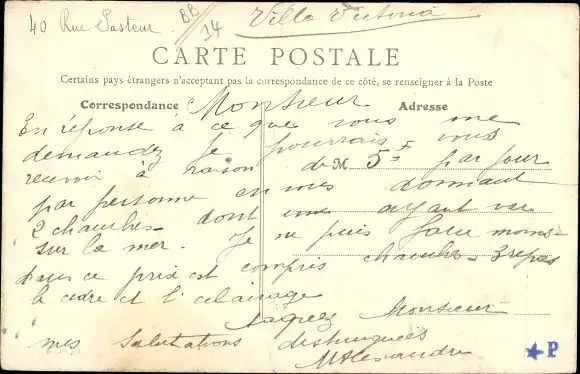 40 Rue Pasteur.
BB/14
Villa Victoria
CARTE POSTALE
Certains pays étrangers n'acceptant pas la correspondance de ce côté, se renseigner à la Poste
Correspondance
Adresse
Monsieur
En réponse à ce que vous me
demandez je pourrais vous
recevoir à raison de 5 F par jour
M
par personne en vous donnant
2 chambres dont une ayant vue
sur la mer. Je ne puis faire moins
dans ce prix est compris chambre 3 repas
le cidre et l'éclairage
Agréez Monsieur
mes salutations distinguées
MAlexandre
★ P